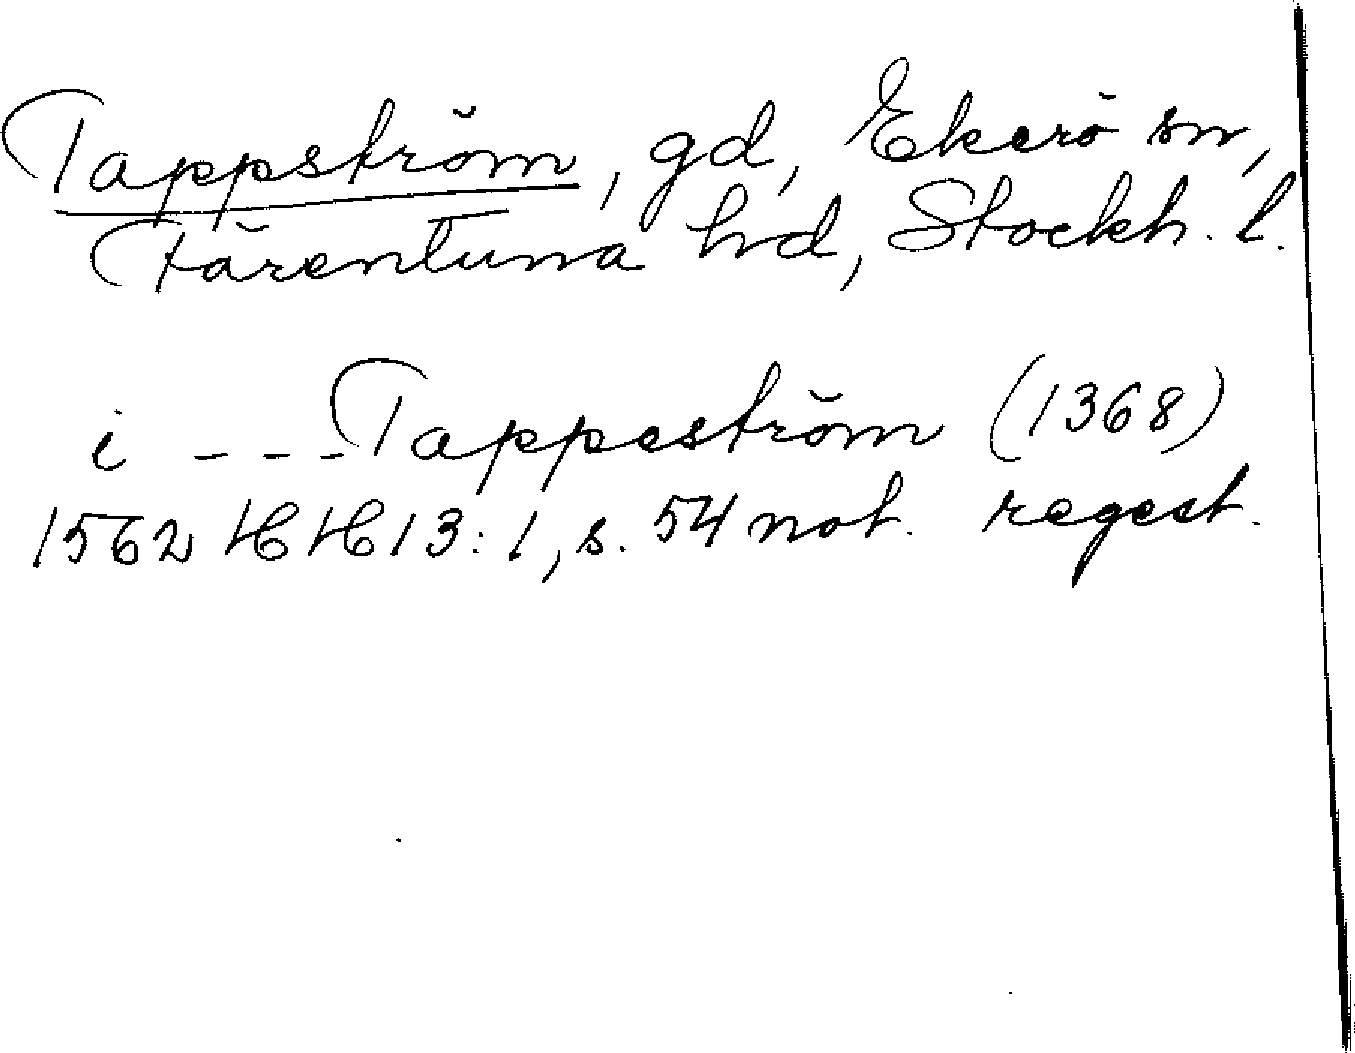 Tappström, gd, Ekerö sn,
Färentuna hd, Stockh. l.
i --- Tappeström (1368)
1562 HH 13:1, s. 54 not. regest.